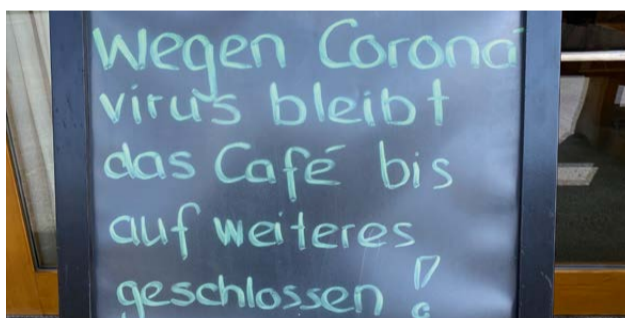 Wegen Corona
virus bleibt
das Café bis
auf weiteres
geschlossen !